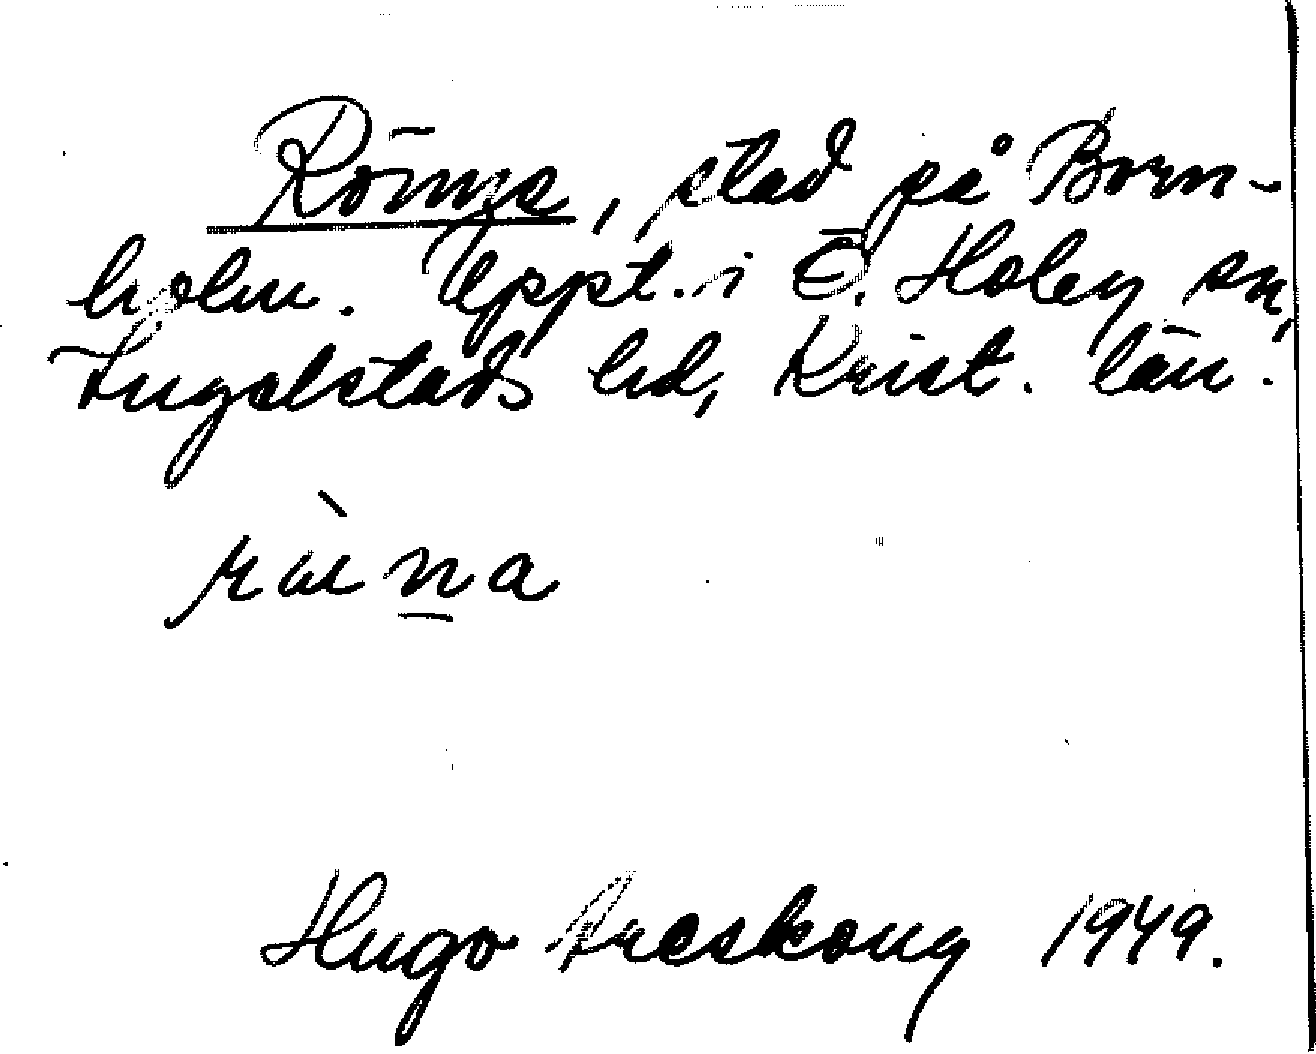 Rönne, stad på Born-
holm. Uppt. i Ö. Hoby sn,
Ingelstads hd, Krist. län.
Hugo Areskoug 1949.